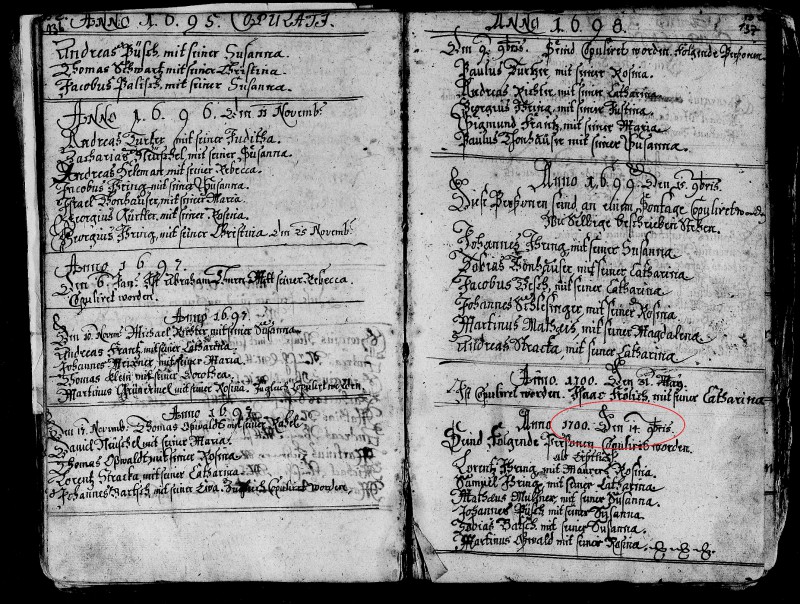 136
ANNO . 1. 6. 9 5. COPULATI.
Andreas Büsch mit seiner Susanna.
Thomas Schwartz mit seiner Christina.
Jacobus Balisch, mit seiner Susanna.
ANNO 1. 6. 9 6. Den 11 Novemb
Andreas Türcher mit seiner Juditha.
Zacharias mit seiner Susanna.
Andreas mit seiner Rebecca.
Jacobus Bring mit seiner Susanna.
Israel Bonhäuser mit seiner Maria.
Georgius Kürtler mit seiner Rosina.
Georgius Bring, mit seiner Christina den 25 Novemb
Anno 1. 6 9 7.
Den 6 Jan: Ist Abraham mit seiner Rebecca.
Copuliret worden.
Anno 1. 6 97.
Den 10. Novemb Michael Richter mit seiner Susanna
Andreas Frantz mit seiner Catharina.
Johannes Meixner mit seiner Maria.
Thomas Klein mit seiner Dorothea.
Martinus mit seiner Rosina. Zugleich Copuliret worden.
Anno 1 6 9 7.
Den 17. Novemb Thomas Opwaldt mit seiner Rahel
Daniel mit seiner Maria.
Thomas Opwaldt mit seiner Rosina
Lorentz Stracka mit seiner Catharina.
Johannes Bartsch mit seiner Eva. Zugleich Copuliret worden.
137
ANNO 1. 6 9 8.
Den 9. 9bris. Seind Copuliret worden. Folgende Personen
Paulus Türcher mit seiner Rosina.
Andreas Richter mit seiner Catharina.
Georgius Bring, mit seiner Justina.
Sigmund Frantz, mit seiner Maria.
Paulus Bonhäuser mit seiner Susanna.
Anno 1. 6 9 9. Den 15. 9bris.
Diese Personen seind an einem Sontage Copuliret worden
Wie Selbige beschrieben stehen.
Johannes Bring, mit seiner Susanna
Tobias Bonhäuser mit seiner Catharina.
Jacobus Besch, mit seiner Catharina.
Johannes Schlesinger, mit seiner Rosina
Martinus Matheis, mit seiner Magdalena.
Andreas Stracka mit seiner Catharina.
Anno. 1700. Den 31. May.
Ist Copuliret worden. Isaac Frölich, mit seiner Catharina
Anno 1700. Den 14. 9bris.
Seind Folgende Personen Copuliret worden.
Lorentz Bring, mit Maurers Rosina.
Samuel Bring, mit seiner Catharina.
Mathaeus Mulsner, mit seiner Susanna.
Johannes Püsch mit seiner Susanna.
Tobias Batsch, mit seiner Susanna.
Martinus Opwald mit seiner Rosina.